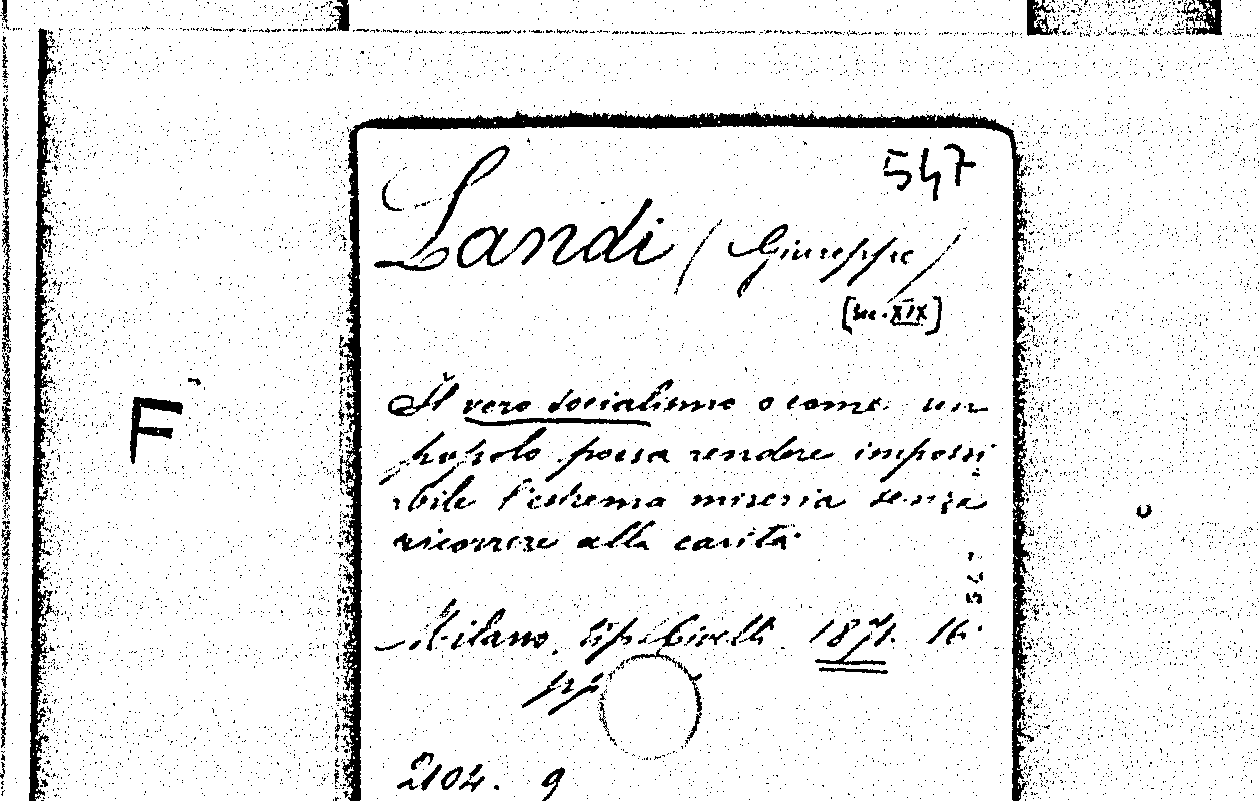 547
Landi (Giuseppe)
[sec. XIX]
Il vero socialismo o come un
popolo possa rendere impossi
bile l'estrema miseria senza
ricorrere alla carità
Milano, tip. Civelli 1871. 16°
pp
F
2104. 9